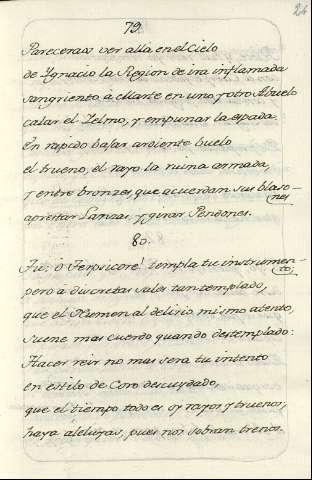 26
79.
Pareceraos ver alla en el Cielo
de Ygnacio la Region de ira inflamada
sangriento à Marte en uno, y otro Abuelo
calar el Zelmo, y empuñar la espada.
En rapido bajar ardiente buelo
el trueno, el rayo la ruina armada,
y entre bronzes, que acuerdan sus blaso-
nes
aprestar Lanzas, y girar Pendones.
80.
Tu, ò Terpsicore! templa tu instrumen-
to,
pero à discretas sales tan templado,
que el Numen al delirio mismo atento,
suene mas cuerdo quando destemplado:
Hacer reir no mas sera tu intento
en estilo de Coro descuydado,
que el tiempo todo es oy rayos y truenos,
haya aleluyas, pues nos sobran trenos.